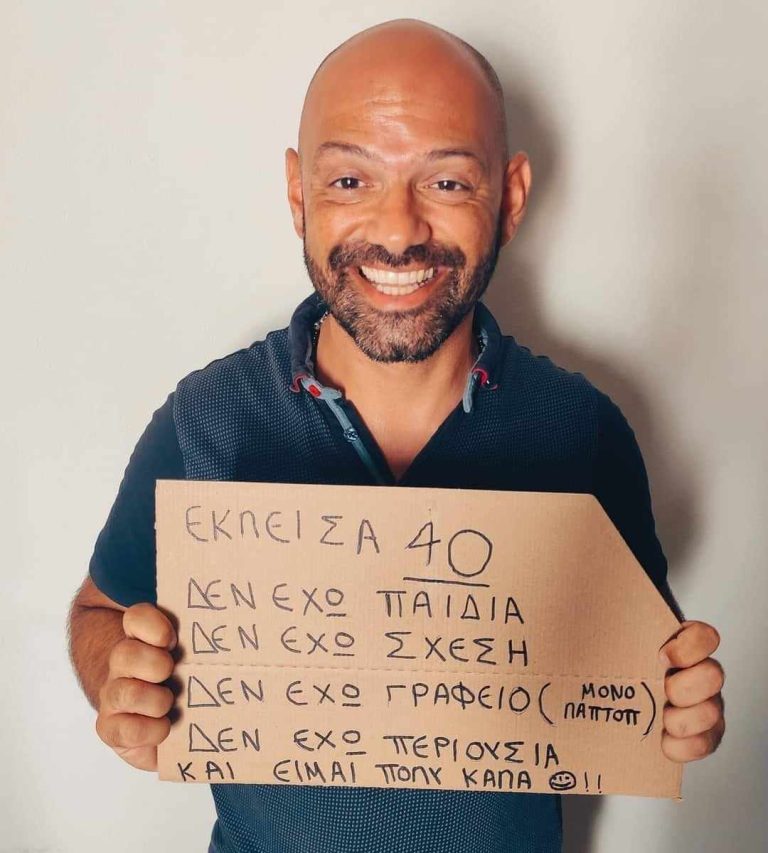 ΕΚΛΕΙΣΑ 40
ΔΕΝ ΕΧΩ ΠΑΙΔΙΑ
ΔΕΝ ΕΧΩ ΣΧΕΣΗ
ΔΕΝ ΕΧΩ ΓΡΑΦΕΙΟ ( ΜΟΝΟ
ΛΑΠΤΟΠ )
ΔΕΝ ΕΧΩ ΠΕΡΙΟΥΣΙΑ
ΚΑΙ ΕΙΜΑΙ ΠΟΛΥ ΚΑΛΑ ☺!!